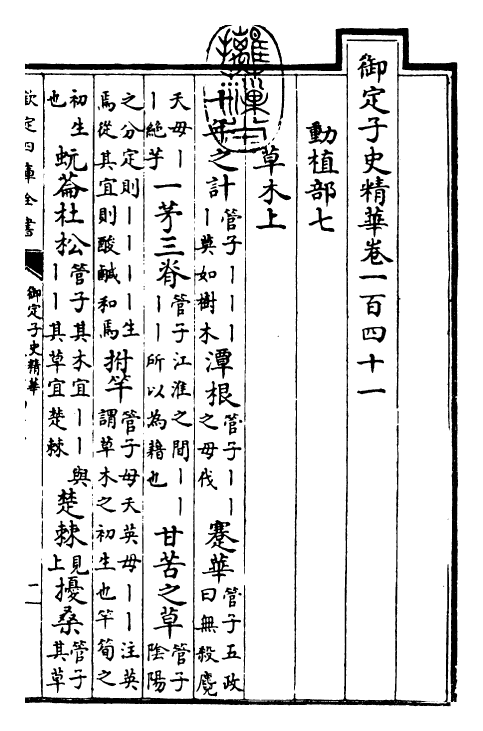 御定子史精華卷一百四十一
動植部七
草木上
十年之計管子｜｜｜｜莫如樹木潭根管子｜｜之毋伐蹇華管子五政曰無殺麑
夭毋｜｜絶芋一茅三脊管子江淮之間｜｜｜｜所以為藉也甘苦之草管子陰陽
之分定則｜｜｜｜生焉從其宜則酸鹹和焉拊竿管子毋夭英毋｜｜注英謂草木之初生也竿筍之
初生也蚖菕杜松管子其木宜｜｜與｜｜其草宜楚棘楚棘見上擾桑管子其草
欽定四庫全書
御定子史精華
一